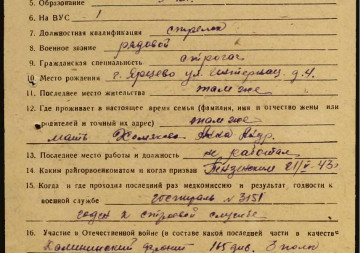 5. Образование
6. На ВУС 1
7. Должностная квалификация стрелок
8. Военное звание рядовой
9. Гражданская специальность строгач
10. Место рождения г. Ярцево ул. д. 4
11. Последнее место жительства там же
12. Где проживает в настоящее время семья (фамилия, имя и отчество жены или
родителей и точный их адрес) там же
мать Анна Андр.
13. Последнее место работы и должность не работал
14. Каким райгорвоенкоматом и когда призван Пензенским 43
15. Когда и где проходил последний раз медкомиссию и результат годности к
военной службе госпиталь № 3151
годен к строевой службе
16. Участие в Отечественной войне (в составе какой последней части в качестве
Калининский фронт див. 3 полк